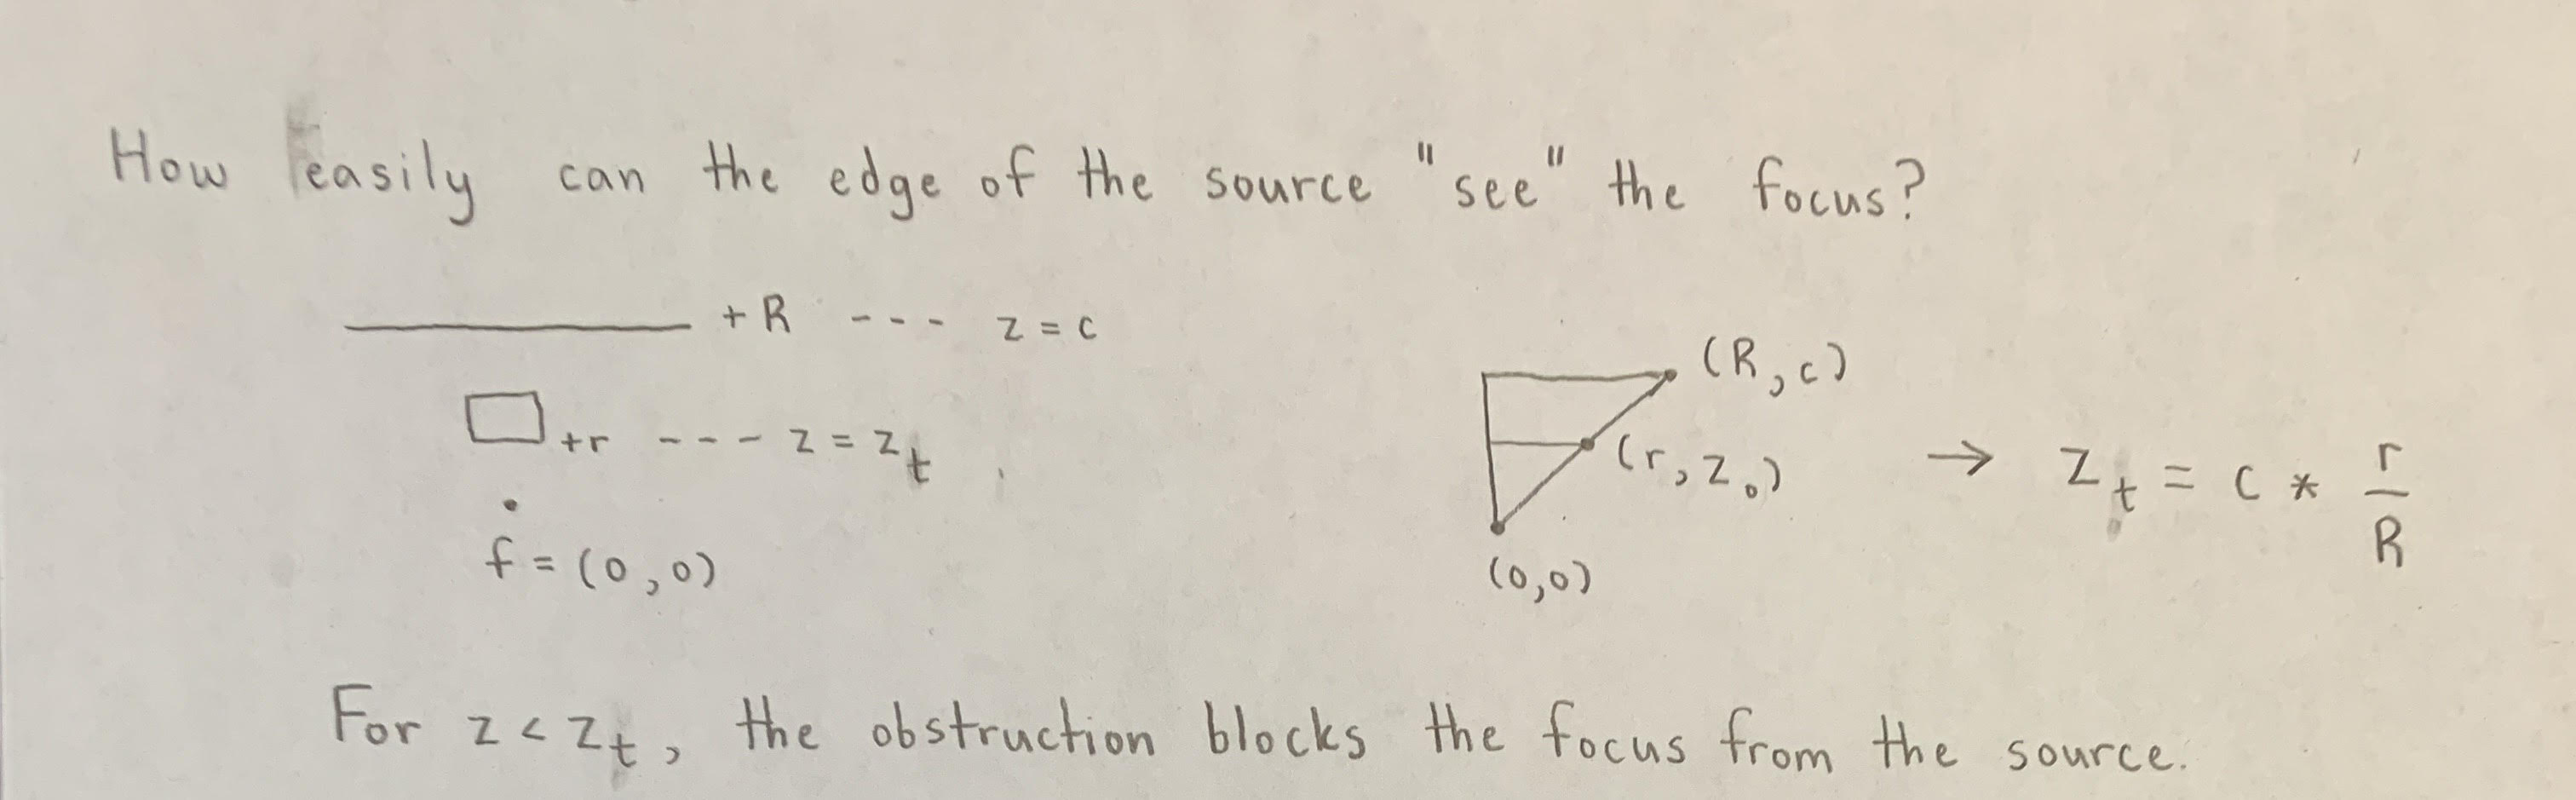 How easily can the edge of the source "see" the focus?
+R --- z = c
(R, c)
+r --- z = z_t
(r, z₀) → z_t = c * r/R
f = (0, 0)
(0,0)
For z < z_t, the obstruction blocks the focus from the source.